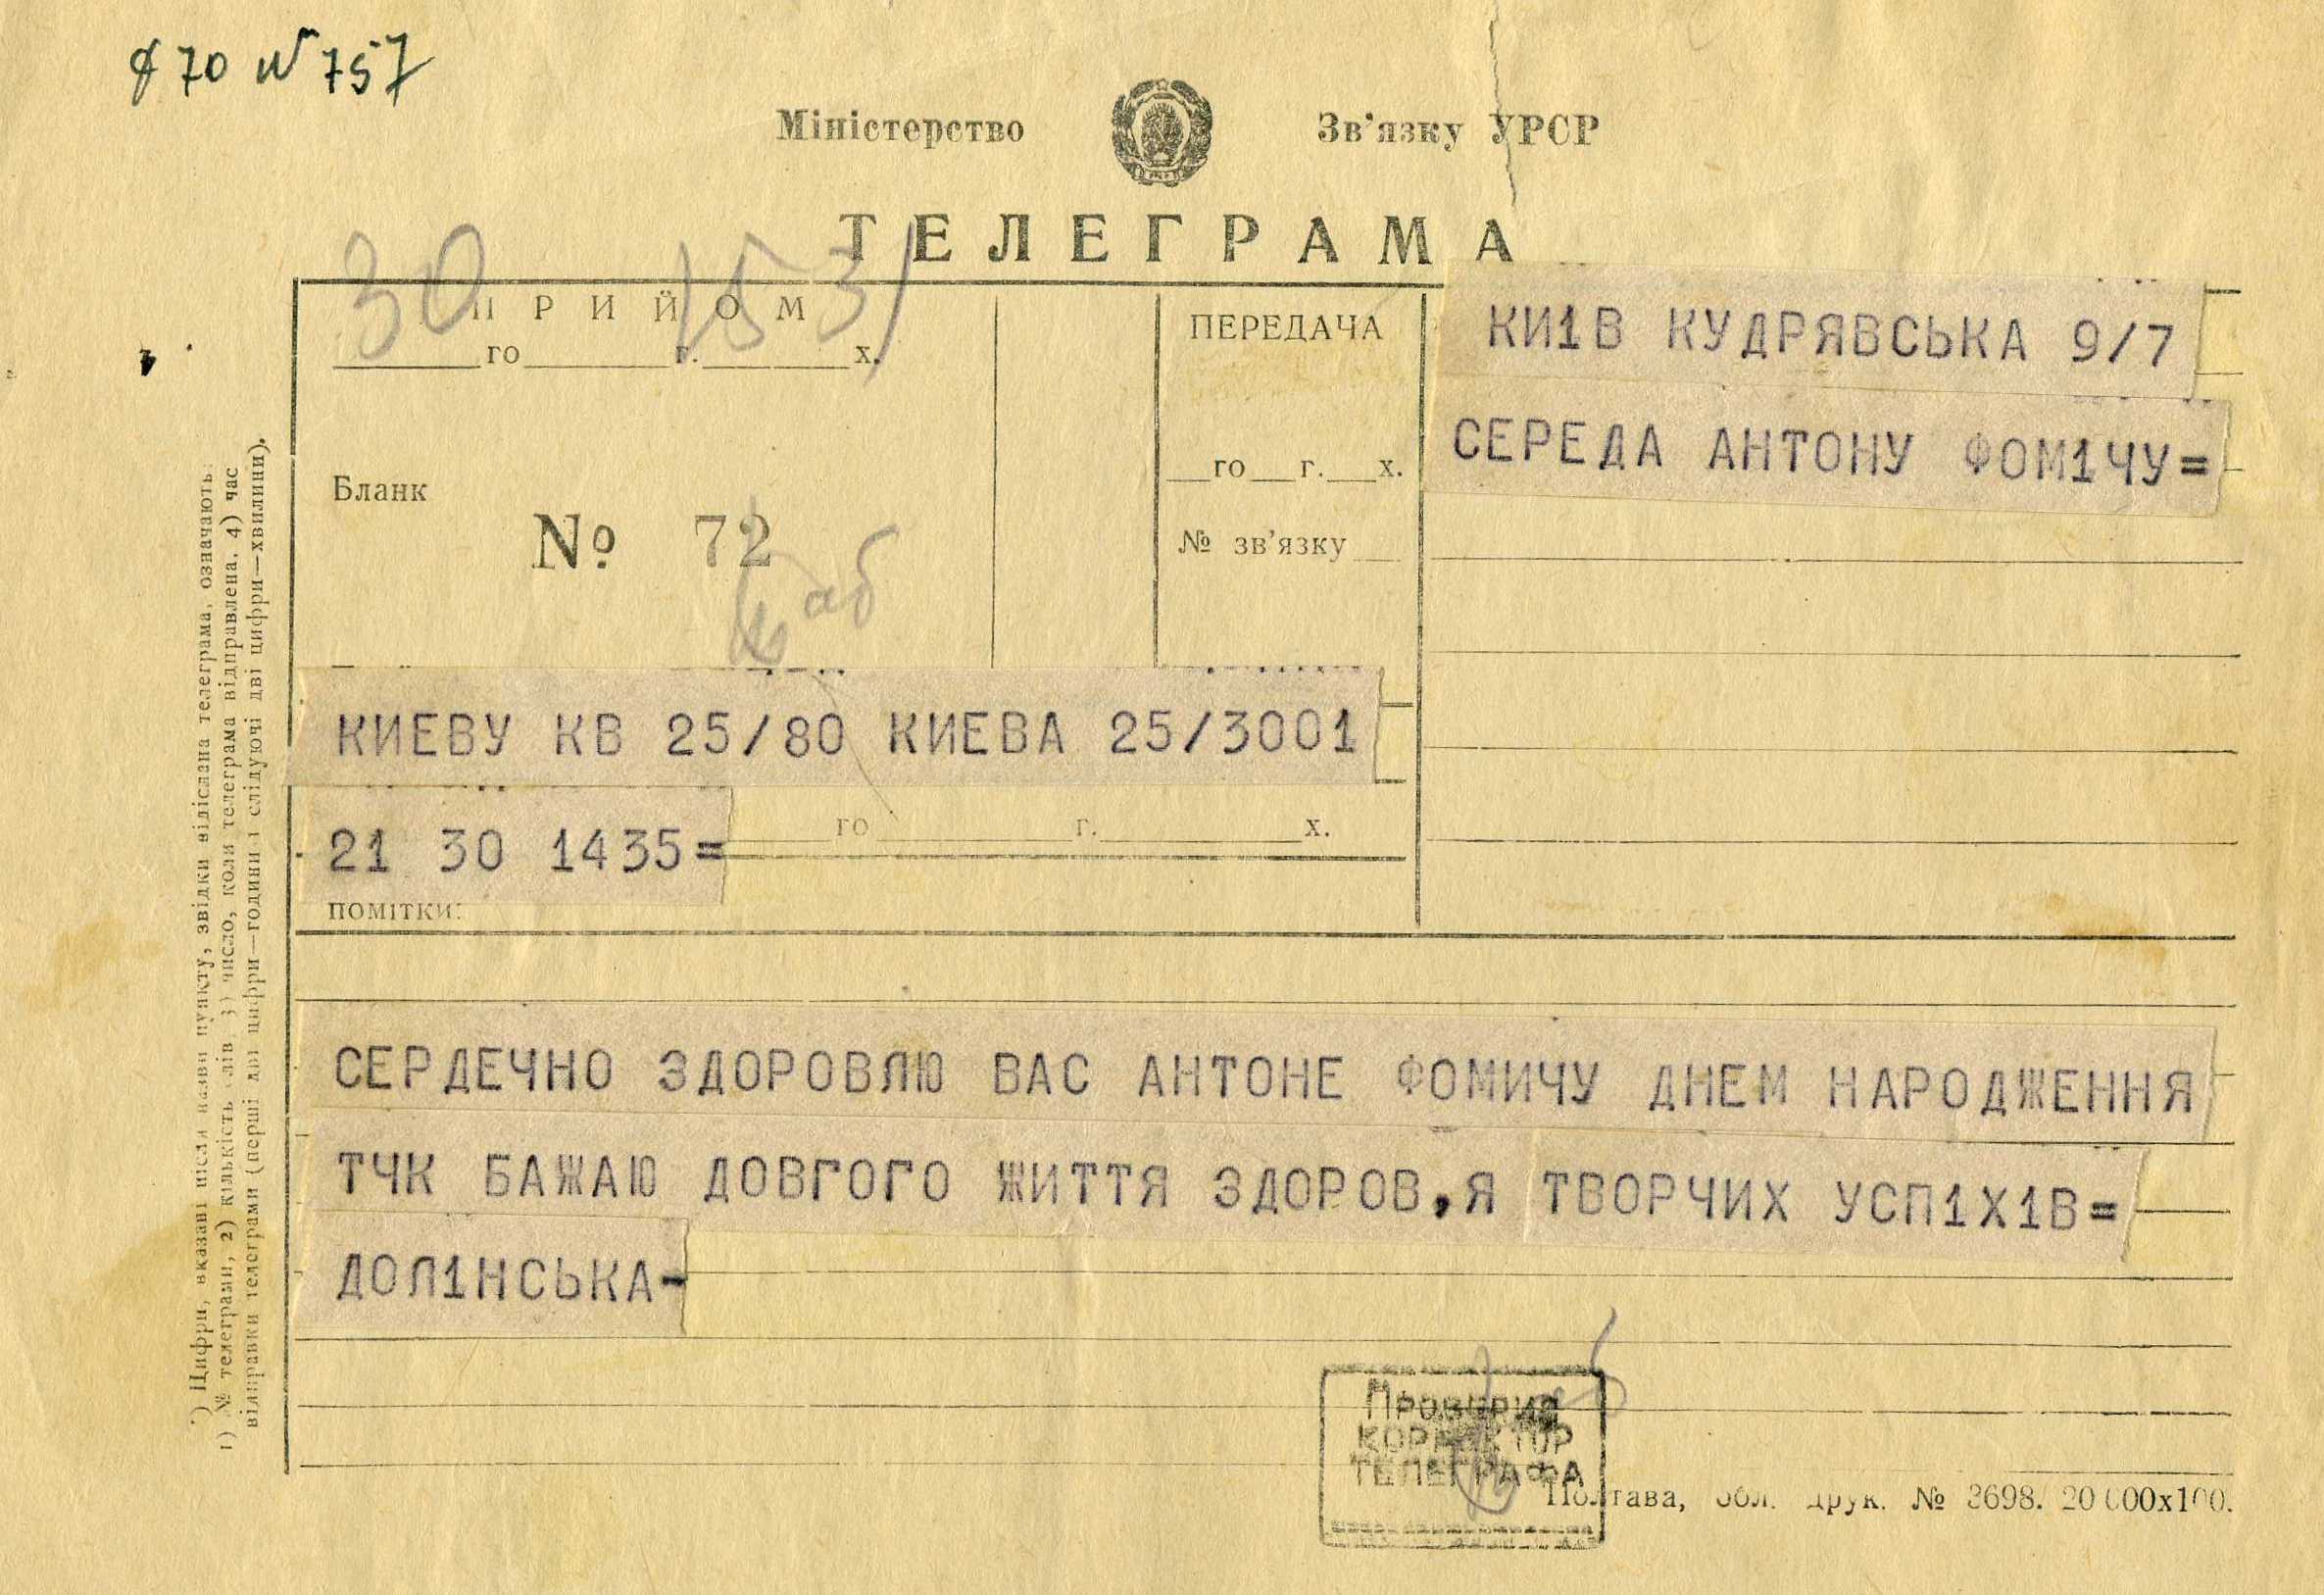 ф 70 № 757
Міністерство Зв'язку УРСР
ТЕЛЕГРАМА
30 15 31
ПРИЙОМ
го г. х.
Бланк
№ 72
ПЕРЕДАЧА
го г. х.
№ зв'язку
КИ1В КУДРЯВСЬКА 9/7
СЕРЕДА АНТОНУ ФОМ1ЧУ=
КИЕВУ КВ 25/80 КИЕВА 25/3001
21 30 1435=
го г. х.
ПОМІТКИ:
СЕРДЕЧНО ЗДОРОВЛЮ ВАС АНТОНЕ ФОМИЧУ ДНЕМ НАРОДЖЕННЯ
ТЧК БАЖАЮ ДОВГОГО ЖИТТЯ ЗДОРОВ,Я ТВОРЧИХ УСП1Х1В=
ДОЛ1НСЬКА-
*) Цифри, вказані після назви пункту, звідки віділана телеграма, означають:
1) № телеграми, 2) кількість слів 3) число, коли телеграма відправлена. 4) час
відправки телеграми (перші дві цифри—години і слідуючі дві цифри—хвилини).
Проверил
КОРРЕКТОР
ТЕЛЕГРАФА
Полтава, обл. друк. № 3698. 20 000х100.